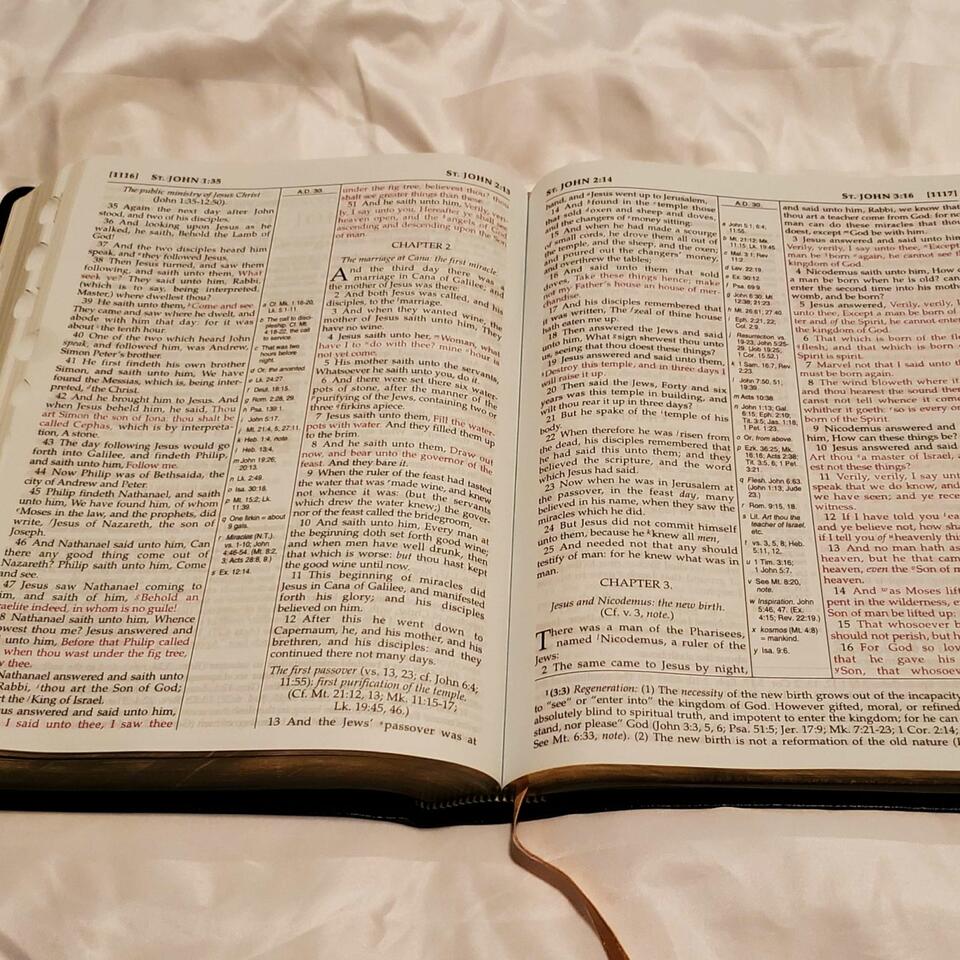 [1116] ST. JOHN 1:35
ST. JOHN 2:13
The public ministry of Jesus Christ
(John 1:35-12:50).
35 Again the next day after John
stood, and two of his disciples;
36 And looking upon Jesus as he
walked, he saith, Behold the Lamb of
God!
37 And the two disciples heard him
speak, and they followed Jesus.
38 Then Jesus turned, and saw them
following, and saith unto them, What
seek ye? They said unto him, Rabbi,
(which is to say, being interpreted,
Master,) where dwellest thou?
39 He saith unto them, Come and see.
They came and saw where he dwelt, and
abode with him that day: for it was
about the tenth hour.
40 One of the two which heard John
speak, and followed him, was Andrew,
Simon Peter's brother.
41 He first findeth his own brother
Simon, and saith unto him, We have
found the Messias, which is, being inter-
preted, the Christ.
42 And he brought him to Jesus. And
when Jesus beheld him, he said, Thou
art Simon the son of Jona: thou shalt be
called Cephas, which is by interpreta-
tion, A stone.
43 The day following Jesus would go
forth into Galilee, and findeth Philip,
and saith unto him, Follow me.
44 Now Philip was of Bethsaida, the
city of Andrew and Peter.
45 Philip findeth Nathanael, and saith
unto him, We have found him, of whom
Moses in the law, and the prophets, did
write, Jesus of Nazareth, the son of
Joseph.
46 And Nathanael said unto him, Can
there any good thing come out of
Nazareth? Philip saith unto him, Come
and see.
47 Jesus saw Nathanael coming to
him, and saith of him, Behold an
raelite indeed, in whom is no guile!
8 Nathanael saith unto him, Whence
owest thou me? Jesus answered and
unto him, Before that Philip called
when thou wast under the fig tree,
w thee.
Nathanael answered and saith unto
Rabbi, thou art the Son of God;
rt the King of Israel.
us answered and said unto him,
I said unto thee, I saw thee
A.D. 30.
a Cf. Mk. 1:16-20,
Lk. 5:1-11.
b The call to disci-
pleship. Cf. Mt.
4:18-22, the call
to service.
c That was two
hours before
night.
d Or, the anointed
e Lk. 24:27
f Deut. 18:15.
g Rom. 2:28, 29.
h Psa. 139:1.
i John 5:17.
j Mt. 21:4, 5; 27:11.
k Heb. 1:4, note.
l Heb. 13:4.
m John 19:26;
20:13.
n Lk. 2:49.
o Isa. 30:18.
p Mt. 15:2; Lk.
11:39.
q One firkin = about
9 gals.
r Miracles (N.T.).
vs. 1-10; John
4:46-54. (Mt. 8:2,
3; Acts 28:8, 9.)
s Ex. 12:14.
under the fig tree, believest thou?
shalt see greater things than these.
51 And he saith unto him, Verily, veri-
ly, I say unto you, Hereafter ye shall see
heaven open, and the angels of God
ascending and descending upon the Son
of man.
CHAPTER 2
The marriage at Cana: the first miracle.
And the third day there was a
marriage in Cana of Galilee; and
the mother of Jesus was there:
2 And both Jesus was called, and his
disciples, to the marriage.
3 And when they wanted wine, the
mother of Jesus saith unto him, They
have no wine.
4 Jesus saith unto her, Woman, what
have I to do with thee? mine hour is
not yet come.
5 His mother saith unto the servants,
Whatsoever he saith unto you, do it.
6 And there were set there six water-
pots of stone, after the manner of the
purifying of the Jews, containing two or
three firkins apiece.
7 Jesus saith unto them, Fill the water-
pots with water. And they filled them up
to the brim.
8 And he saith unto them, Draw out
now, and bear unto the governor of the
feast. And they bare it.
9 When the ruler of the feast had tasted
the water that was made wine, and knew
not whence it was: (but the servants
which drew the water knew;) the gover-
nor of the feast called the bridegroom,
10 And saith unto him, Every man at
the beginning doth set forth good wine;
and when men have well drunk, then
that which is worse: but thou hast kept
the good wine until now.
11 This beginning of miracles did
Jesus in Cana of Galilee, and manifested
forth his glory; and his disciples
believed on him.
12 After this he went down to
Capernaum, he, and his mother, and his
brethren, and his disciples: and they
continued there not many days.
The first passover (vs. 13, 23; cf. John 6:4;
11:55); first purification of the temple.
(Cf. Mt. 21:12, 13; Mk. 11:15-17;
Lk. 19:45, 46.)
13 And the Jews' passover was at
ST. JOHN 2:14
ST. JOHN 3:16 [1117]
hand, and Jesus went up to Jerusalem,
14 And found in the temple those
that sold oxen and sheep and doves,
and the changers of money sitting:
15 And when he had made a scourge
of small cords, he drove them all out of
the temple, and the sheep, and the oxen;
and poured out the changers' money,
and overthrew the tables;
16 And said unto them that sold
doves, Take these things hence; make
not my Father's house an house of mer-
chandise.
17 And his disciples remembered that
it was written, The zeal of thine house
hath eaten me up.
18 Then answered the Jews and said
unto him, What sign shewest thou unto
us, seeing that thou doest these things?
19 Jesus answered and said unto them,
Destroy this temple, and in three days I
will raise it up.
20 Then said the Jews, Forty and six
years was this temple in building, and
wilt thou rear it up in three days?
21 But he spake of the temple of his
body.
22 When therefore he was risen from
the dead, his disciples remembered that
he had said this unto them; and they
believed the scripture, and the word
which Jesus had said.
23 Now when he was in Jerusalem at
the passover, in the feast day, many
believed in his name, when they saw the
miracles which he did.
24 But Jesus did not commit himself
unto them, because he knew all men,
25 And needed not that any should
testify of man: for he knew what was in
man.
CHAPTER 3.
Jesus and Nicodemus: the new birth.
(Cf. v. 3, note.)
There was a man of the Pharisees,
named Nicodemus, a ruler of the
Jews:
2 The same came to Jesus by night,
A.D. 30.
a John 5:1; 6:4;
11:55.
b Mt. 21:12; Mk.
11:15; Lk. 19:45
c Mal. 3:1; Rev.
11:2
d Lev. 22:19.
e Ex. 30:12.
f Psa. 69:9.
g John 6:30; Mt.
12:38; 21:23.
h Mt. 26:61; 27:40.
i Eph. 2:21, 22;
Col. 2:9.
j Resurrection. vs.
19-23; John 5:25-
29. (Job 19:25;
1 Cor. 15:52.)
k 1 Sam. 16:7; Rev.
2:23.
l John 7:50, 51;
19:39
m Acts 10:38
n John 1:13; Gal.
6:15; Eph. 2:10;
Tit. 3:5; Jas. 1:18;
1 Pet. 1:23.
o Or, from above.
p Ezk. 36:25; Mk.
16:16; Acts 2:38;
Tit. 3:5, 6; 1 Pet.
3:21.
q Flesh. John 6:63.
(John 1:13; Jude
23.)
r Rom. 9:15, 18.
s Lit. Art thou the
teacher of Israel,
etc.
t vs. 3, 5, 8; Heb.
5:11, 12.
u 1 Tim. 3:16;
1 John 5:7.
v See Mt. 8:20,
note.
w Inspiration. John
5:46, 47. (Ex.
4:15; Rev. 22:19.)
x kosmos (Mt. 4:8)
= mankind.
y Isa. 9:6.
and said unto him, Rabbi, we know that
thou art a teacher come from God: for no
man can do these miracles that thou
doest, except God be with him.
3 Jesus answered and said unto him
Verily, verily, I say unto thee, Except
man be born again, he cannot see th
kingdom of God.
4 Nicodemus saith unto him, How c
a man be born when he is old? can
enter the second time into his mothe
womb, and be born?
5 Jesus answered, Verily, verily, I
unto thee, Except a man be born of
ter and of the Spirit, he cannot enter
the kingdom of God.
6 That which is born of the fl
flesh; and that which is born
Spirit is spirit.
7 Marvel not that I said unto t
must be born again.
8 The wind bloweth where it
and thou hearest the sound ther
canst not tell whence it come
whither it goeth: so is every or
born of the Spirit.
9 Nicodemus answered and
him, How can these things be?
10 Jesus answered and said
Art thou a master of Israel, a
est not these things?
11 Verily, verily, I say unt
speak that we do know, and
we have seen; and ye rece
witness.
12 If I have told you ea
and ye believe not, how sha
if I tell you of heavenly thi
13 And no man hath as
heaven, but he that came
heaven, even the Son of m
heaven.
14 And as Moses lift
pent in the wilderness, e
Son of man be lifted up:
15 That whosoever b
should not perish, but h
16 For God so lov
that he gave his
Son, that whosoev
1(3:3) Regeneration: (1) The necessity of the new birth grows out of the incapacity
to "see" or "enter into" the kingdom of God. However gifted, moral, or refined
absolutely blind to spiritual truth, and impotent to enter the kingdom; for he can
stand, nor please" God (John 3:3, 5, 6; Psa. 51:5; Jer. 17:9; Mk. 7:21-23; 1 Cor. 2:14;
See Mt. 6:33, note). (2) The new birth is not a reformation of the old nature (